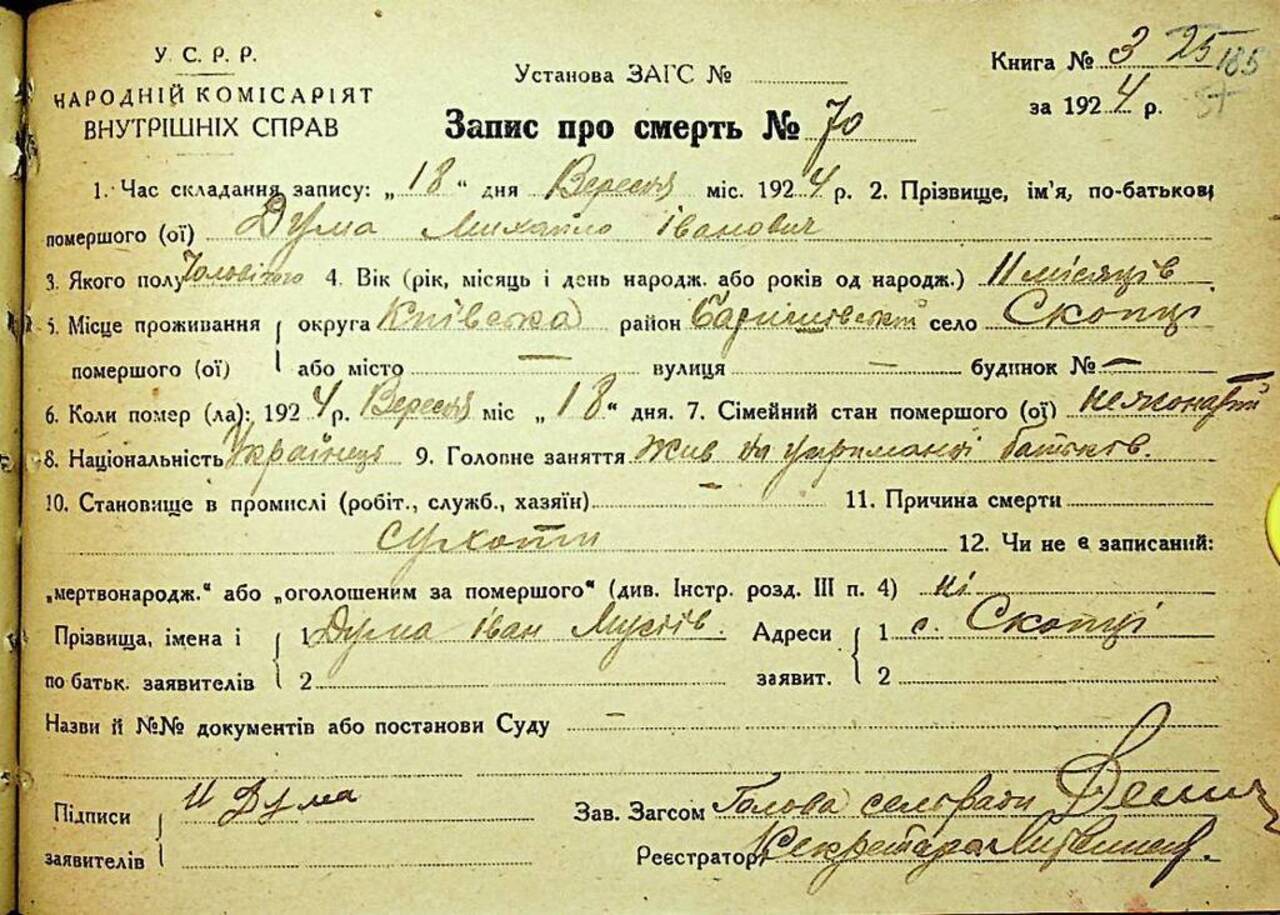 У. С. Р. Р.
НАРОДНІЙ КОМІСАРІЯТ
ВНУТРІШНІХ СПРАВ
Установа ЗАГС №
Книга № 3 25 185
за 1924 р.
Запис про смерть № 70
1. Час складання запису: „18“ дня Вересня міс. 1924 р. 2. Прізвище, ім'я, по-батькові
помершого (ої) Дума Михайло Іванович
3. Якого полу Чоловічого 4. Вік (рік, місяць і день народж. або років од народж.) 11 місяців
5. Місце проживання округа Київська район Баришівський село Скопці
помершого (ої) або місто — вулиця — будинок № —
6. Коли помер (ла): 1924 р. Вересня міс „18“ дня. 7. Сімейний стан помершого (ої)
8. Національність Українець 9. Головне заняття Жив на утриманні батьків.
10. Становище в промислі (робіт., служб., хазяїн) — 11. Причина смерти
сухоти 12. Чи не є записаний:
„мертвонародж.“ або „оголошеним за помершого“ (див. Інстр. розд. III п. 4) ні
Прізвища, імена і 1 Дума Іван Мусіїв. Адреси 1 с. Скопці
по батьк. заявителів 2 заявит. 2
Назви й №№ документів або постанови Суду —
Підписи И Дума Зав. Загсом Голова сельради
заявителів Реєстратор Секретарь